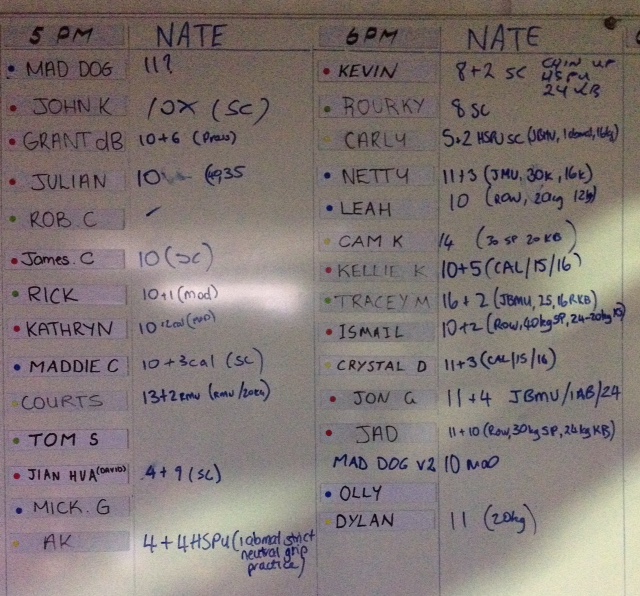 5 PM NATE
MAD DOG 11?
JOHN K 10X (SC)
GRANT dB 10+6 (Press)
JULIAN 10
ROB. C ✓
James. C 10 (SC)
RICK 10+1 (mod)
KATHRYN 10
MADDIE C 10+3cal (SC)
COURTS 13+2RMU (RMU/20kg)
TOM S
JIAN HUA (DAVID) 4+9 (SC)
MICK. G
AK 4+4HSPU (1abmat strict
neutral grip
practice)
6PM NATE
KEVIN 8+2 SC CHIN UP
HSPU
24 KB
ROURKY 8 SC
CARLY 5+2 HSPU SC (JBMU, 1abmat, 16kg)
NETTY 11+3 (JMU, 30K, 16K)
LEAH 10 (ROW, 20kg 12kg)
CAM K 14 (30 SP 20 KB)
KELLIE K 10+5 (CAL/15/16)
TRACEY M 16+2 (JBMU, 25, 16RKB)
ISMAIL 10+2 (Row, 40kgSP, 24-20kg KB)
CRYSTAL D 11+3 (CAL/15/16)
JON G 11+4 JBMU/1AB/24
JAD 11+10 (Row, 30kg SP, 24kg KB)
MAD DOG V2 10 MOD
OLLY
DYLAN 11 (20kg)